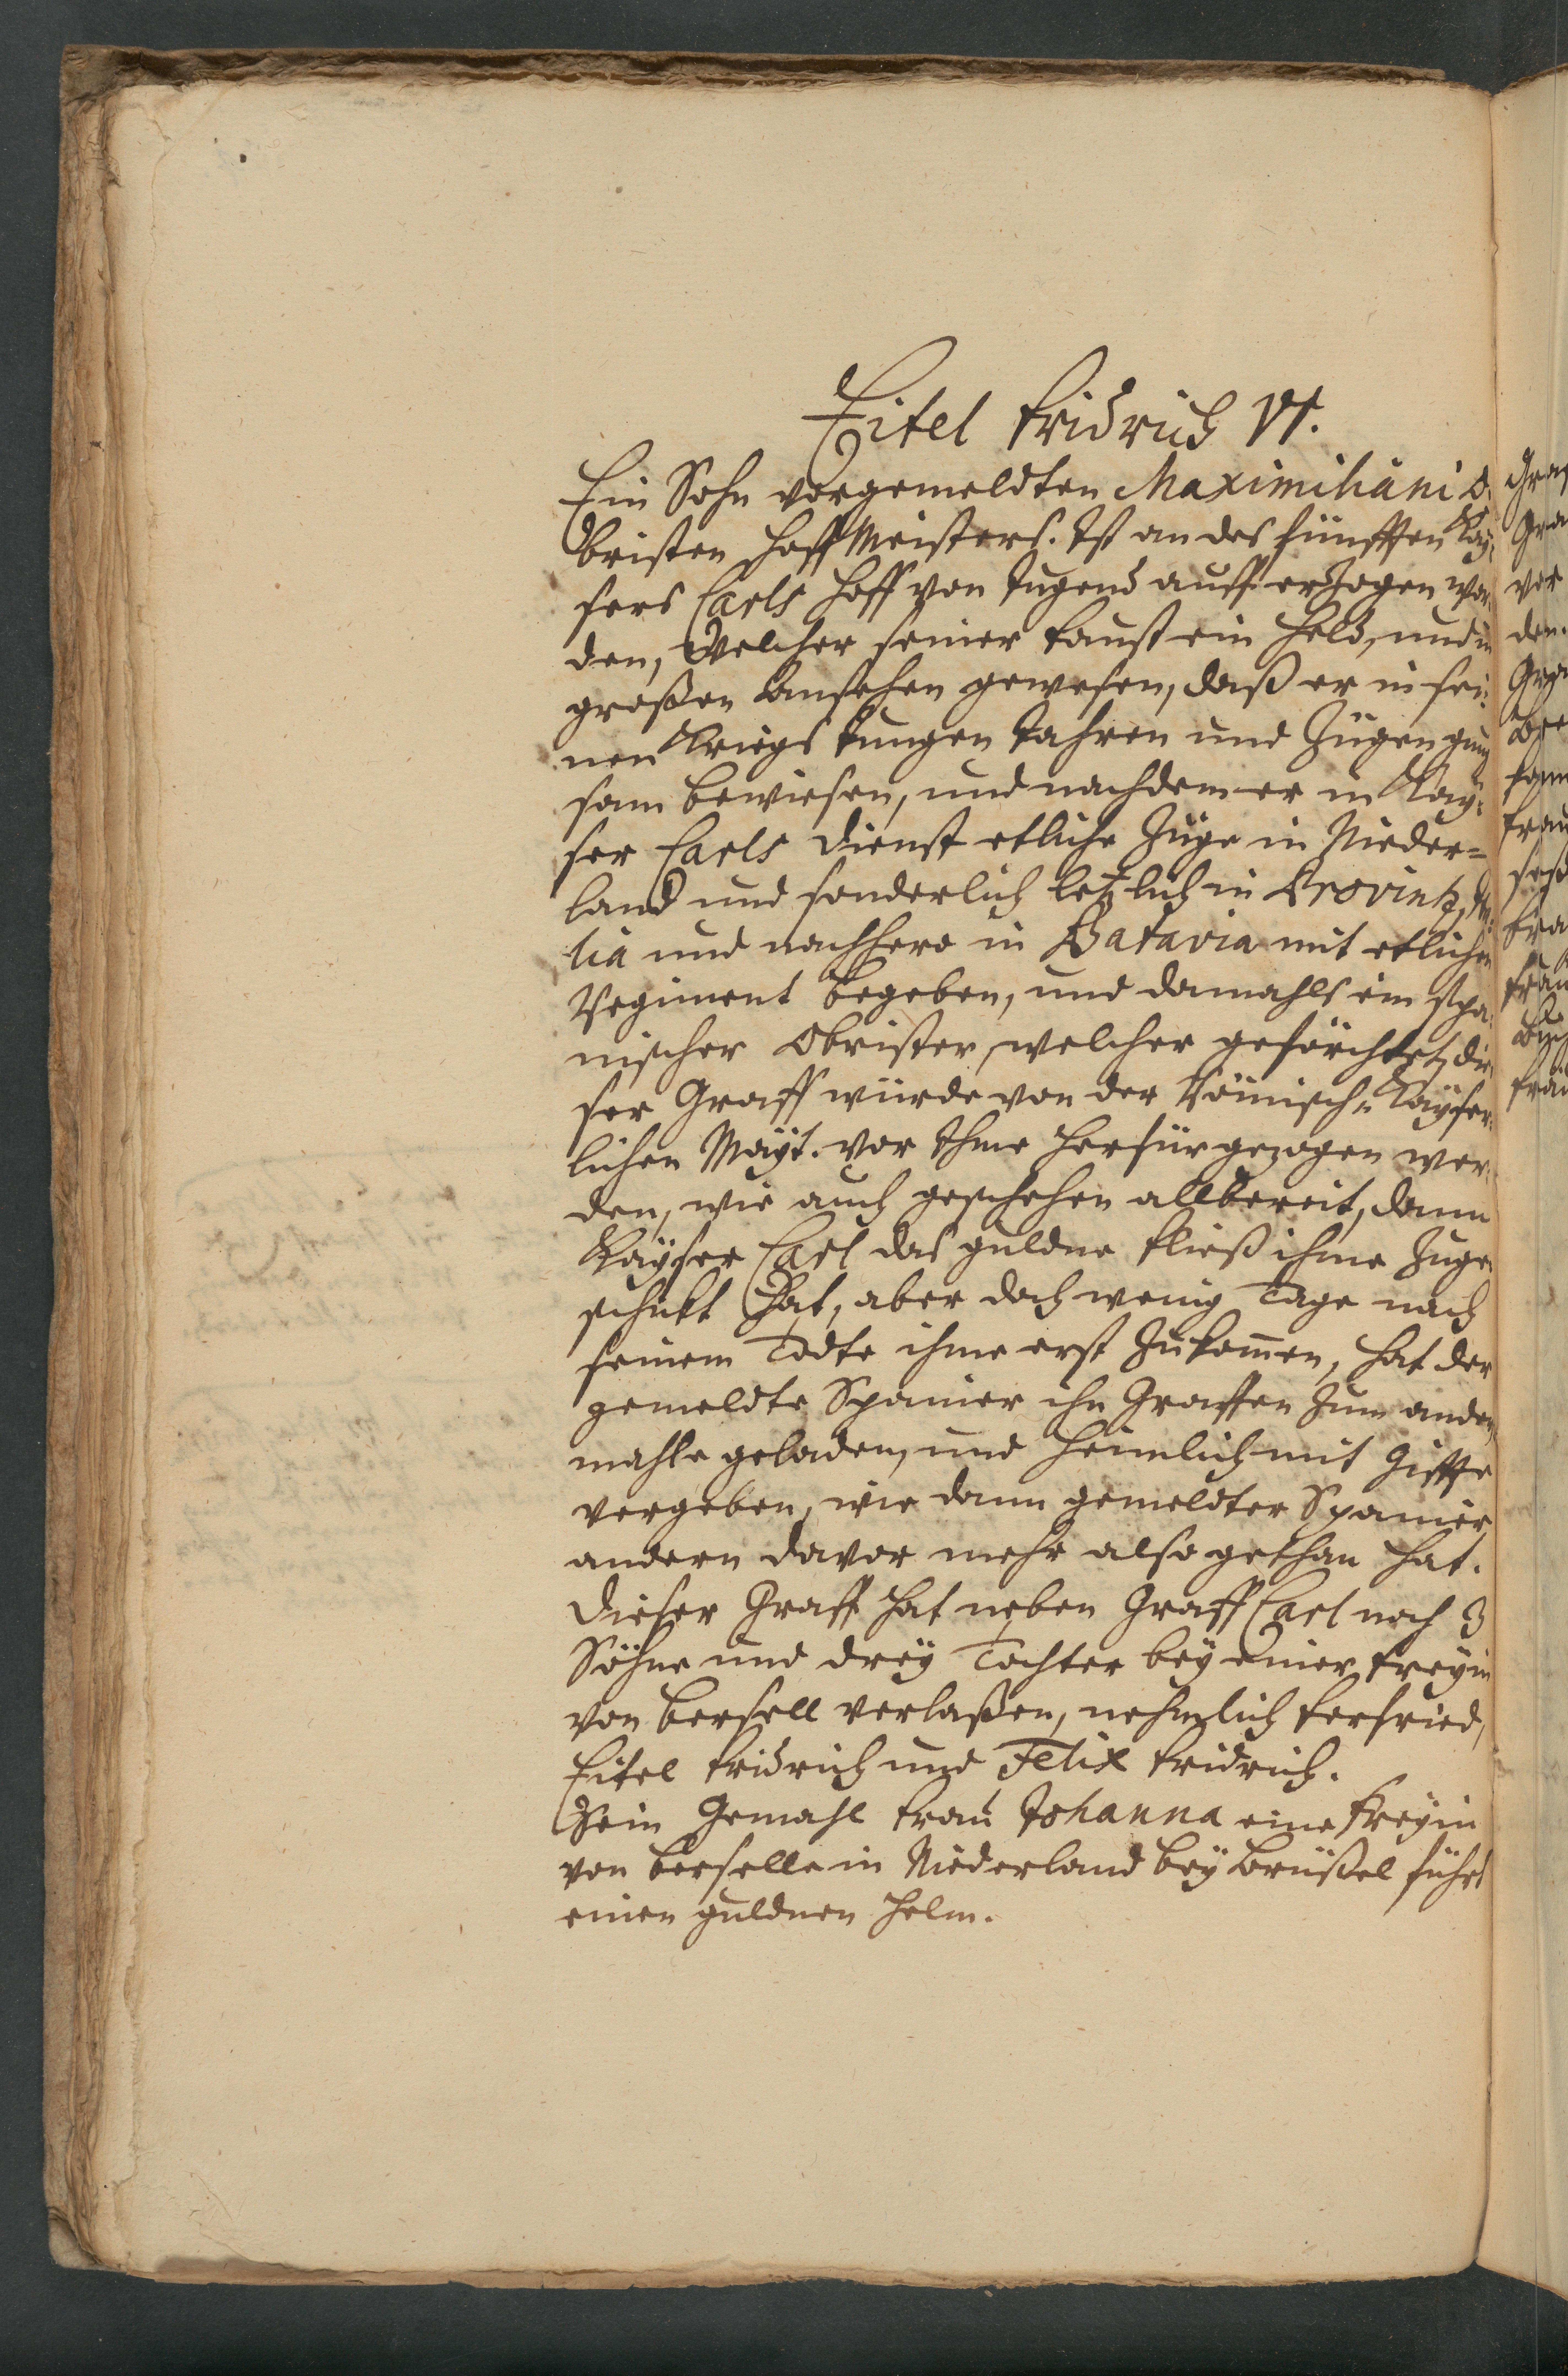 Eitel Fridrich VI.
Ein Sohn vorgemeldten Maximiliani O-
bristen Hoff Meisters. Ist an des fünfften Kaÿ-
sers Carls Hoff von Jugend auff erzogen wor-
den, Welcher seiner Faust ein Held, und in
großen Ansehen gewesen, daß er in sei-
nen Kriegs Jungen Jahren und Zügen gnug
sam bewiesen, und nachdem er in Kaÿ-
ser Carls Dienst etliche Züge in Nieder=
land und sonderlich letzlich in Provintz, Ita-
lia und nachhero in Batavia mit etlichen
Regiment begeben, und damahls ein Spa-
nischer Obrister, welcher geförchtet, die-
ser Graff würde von der Römisch. Kaÿser-
lichen Maÿt. vor Ihme herfür gezogen wer-
den, wie auch geschehen allbereit, dann
Kaÿser Carl das guldne Fließ ihme zuge-
schikt hat, aber doch wenig Tage nach
seinem Todte ihme erst zukom̄en, hat der
gemeldte Spanier ihn Graffen zum andern
mahle geladen, und heimlich mit Giffte
vergeben, wie dann gemeldter Spanier
andern davor mehr also gethan hat.
Dieser Graff hat neben Graff Carl noch 3
Söhne und dreÿ Tochter beÿ einer Freÿin
von Bersell verlaßen, nehmlich Ferfried,
Eitel Fridrich und Felix Fridrich.
Sein Gemahl Frau Johanna eine Freÿin
von Berselle in Niederland beÿ Brüßel führt
einen guldnen Helm.